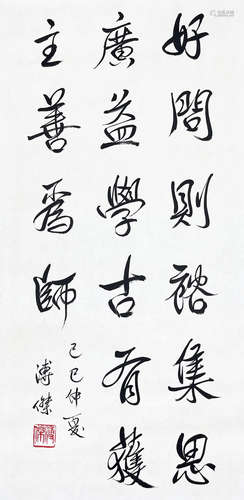 好問則裕集思
廣益學古有獲
主善為師
己巳仲夏
溥傑